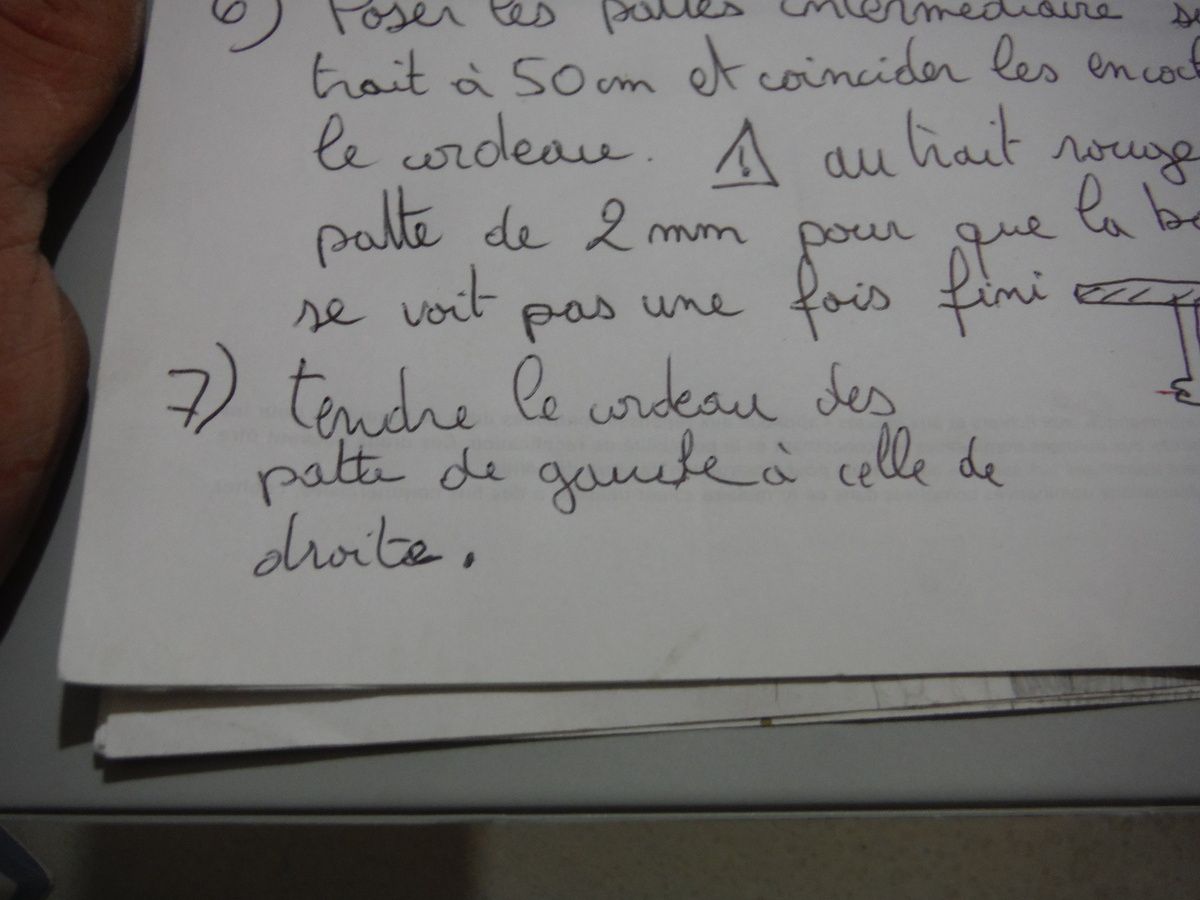 6) Poser les pattes intermédiaire
trait à 50 cm et coincider les encoc
le cordeau. ⚠ au trait rouge
patte de 2 mm pour que la
se voit pas une fois fini
7) tendre le cordeau des
patte de gauche à celle de
droite.